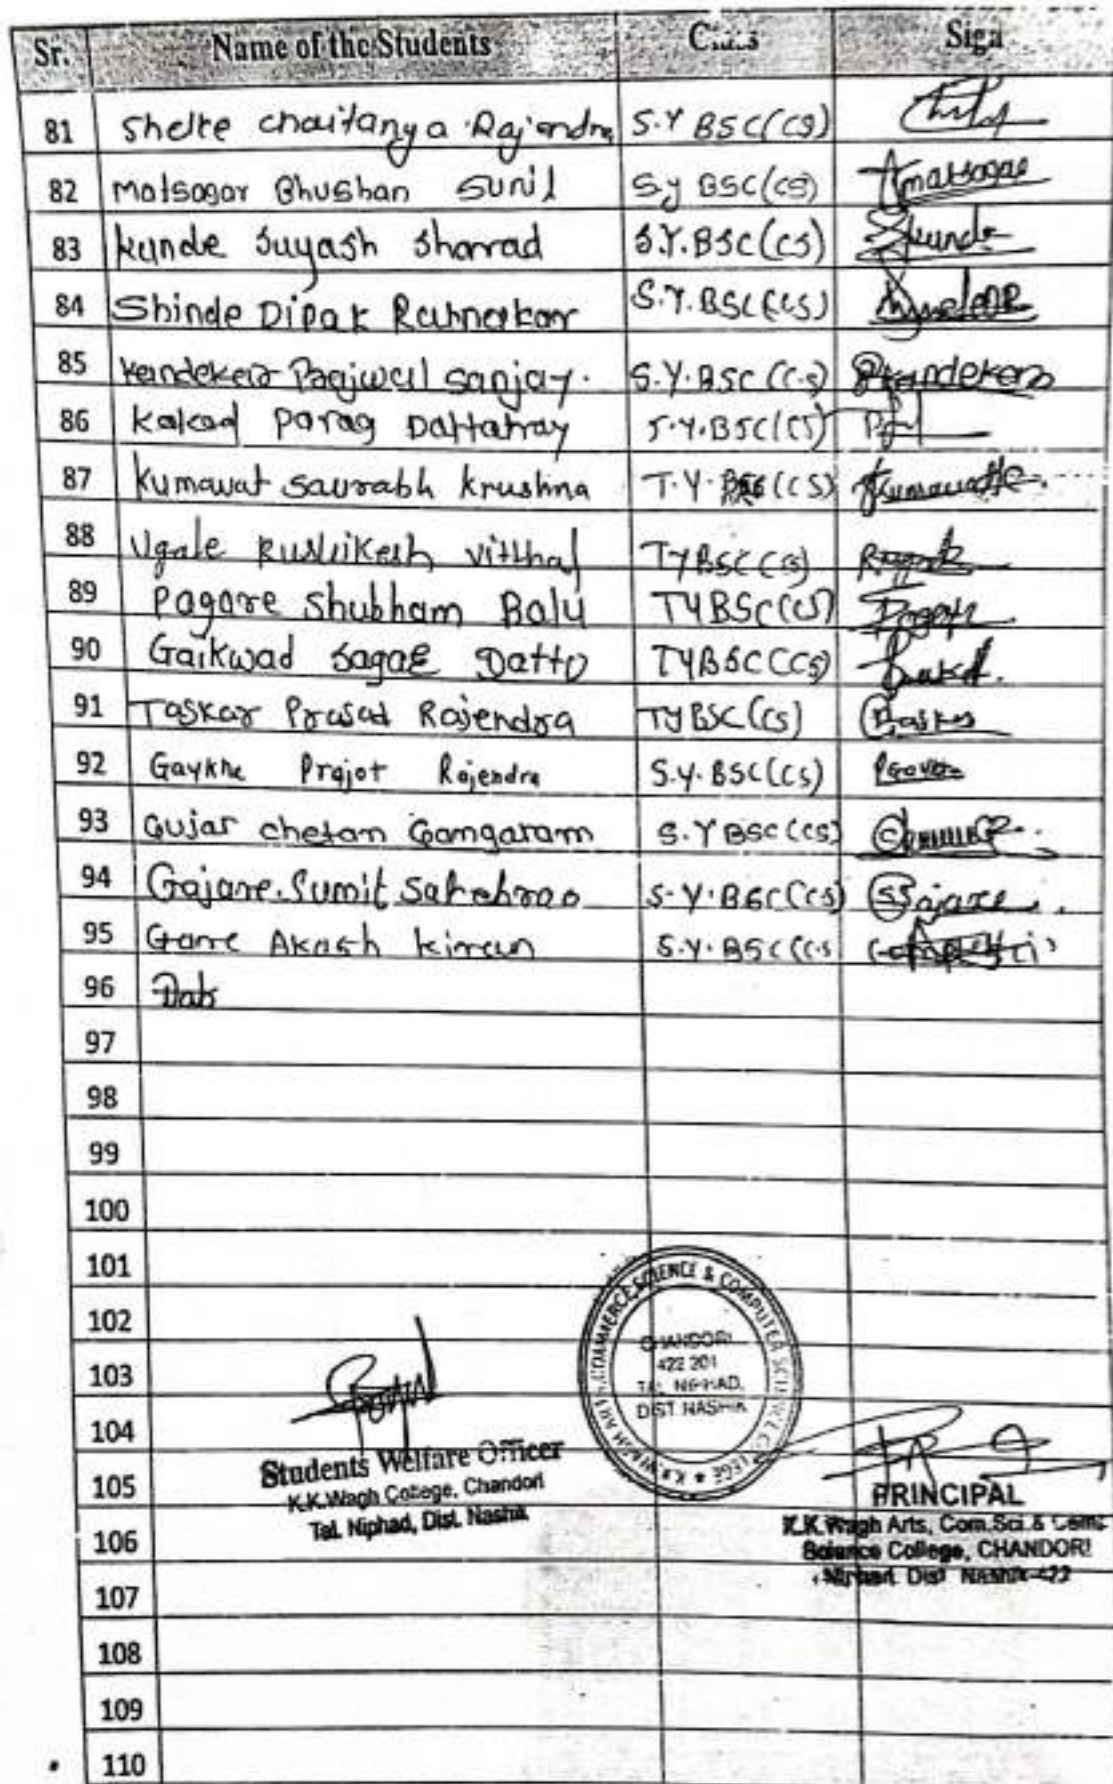 Sr. Name of the Students Class Sign
81 Shelke Chaitanya Rajendra S.Y BSC(CS)
82 Matsagar Bhushan Sunil Sy BSC(CS) matsagar
83 Kunde Suyash Sharad S.Y.BSC(CS) Skunde
84 Shinde Dipak Ratnakar S.Y.BSC(CS)
85 Kandekar Prajwal Sanjay. S.Y.BSC(CS) Pkandekar
86 Kakad Parag Dattatray S.Y.BSC(CS)
87 Kumawat Saurabh Krushna T.Y.BSC(CS)
88 Ugale Rushikesh Vitthal TYBSC(CS)
89 Pagare Shubham Balu TYBSC(CS)
90 Gaikwad Sagar Datto TYBSC(CS)
91 Taskar Prasad Rajendra TYBSC(CS)
92 Gaykhe Prajot Rajendra S.Y.BSC(CS)
93 Gujar Chetan Gamgaram S.YBSC(CS)
94 Gajare.Sumit Sahebrao S.Y.BSC(CS) SGajare.
95 Gare Akash Kiran S.Y.BSC(CS
96
97
98
99
100
101
102
103
104
105
106
107
108
109
110
K.K.WAGH ARTS, COMMERCE, SCIENCE & COMPUTER SCIENCE COLLEGE
CHANDORI
422 201
TAL. NIPHAD,
DIST. NASHIK
Students Welfare Officer
K.K.Wagh College, Chandori
Tal. Niphad, Dist. Nashik
PRINCIPAL
K.K.Wagh Arts, Com.Sci.&
Science College, CHANDORI
Niphad, Dist Nashik-422